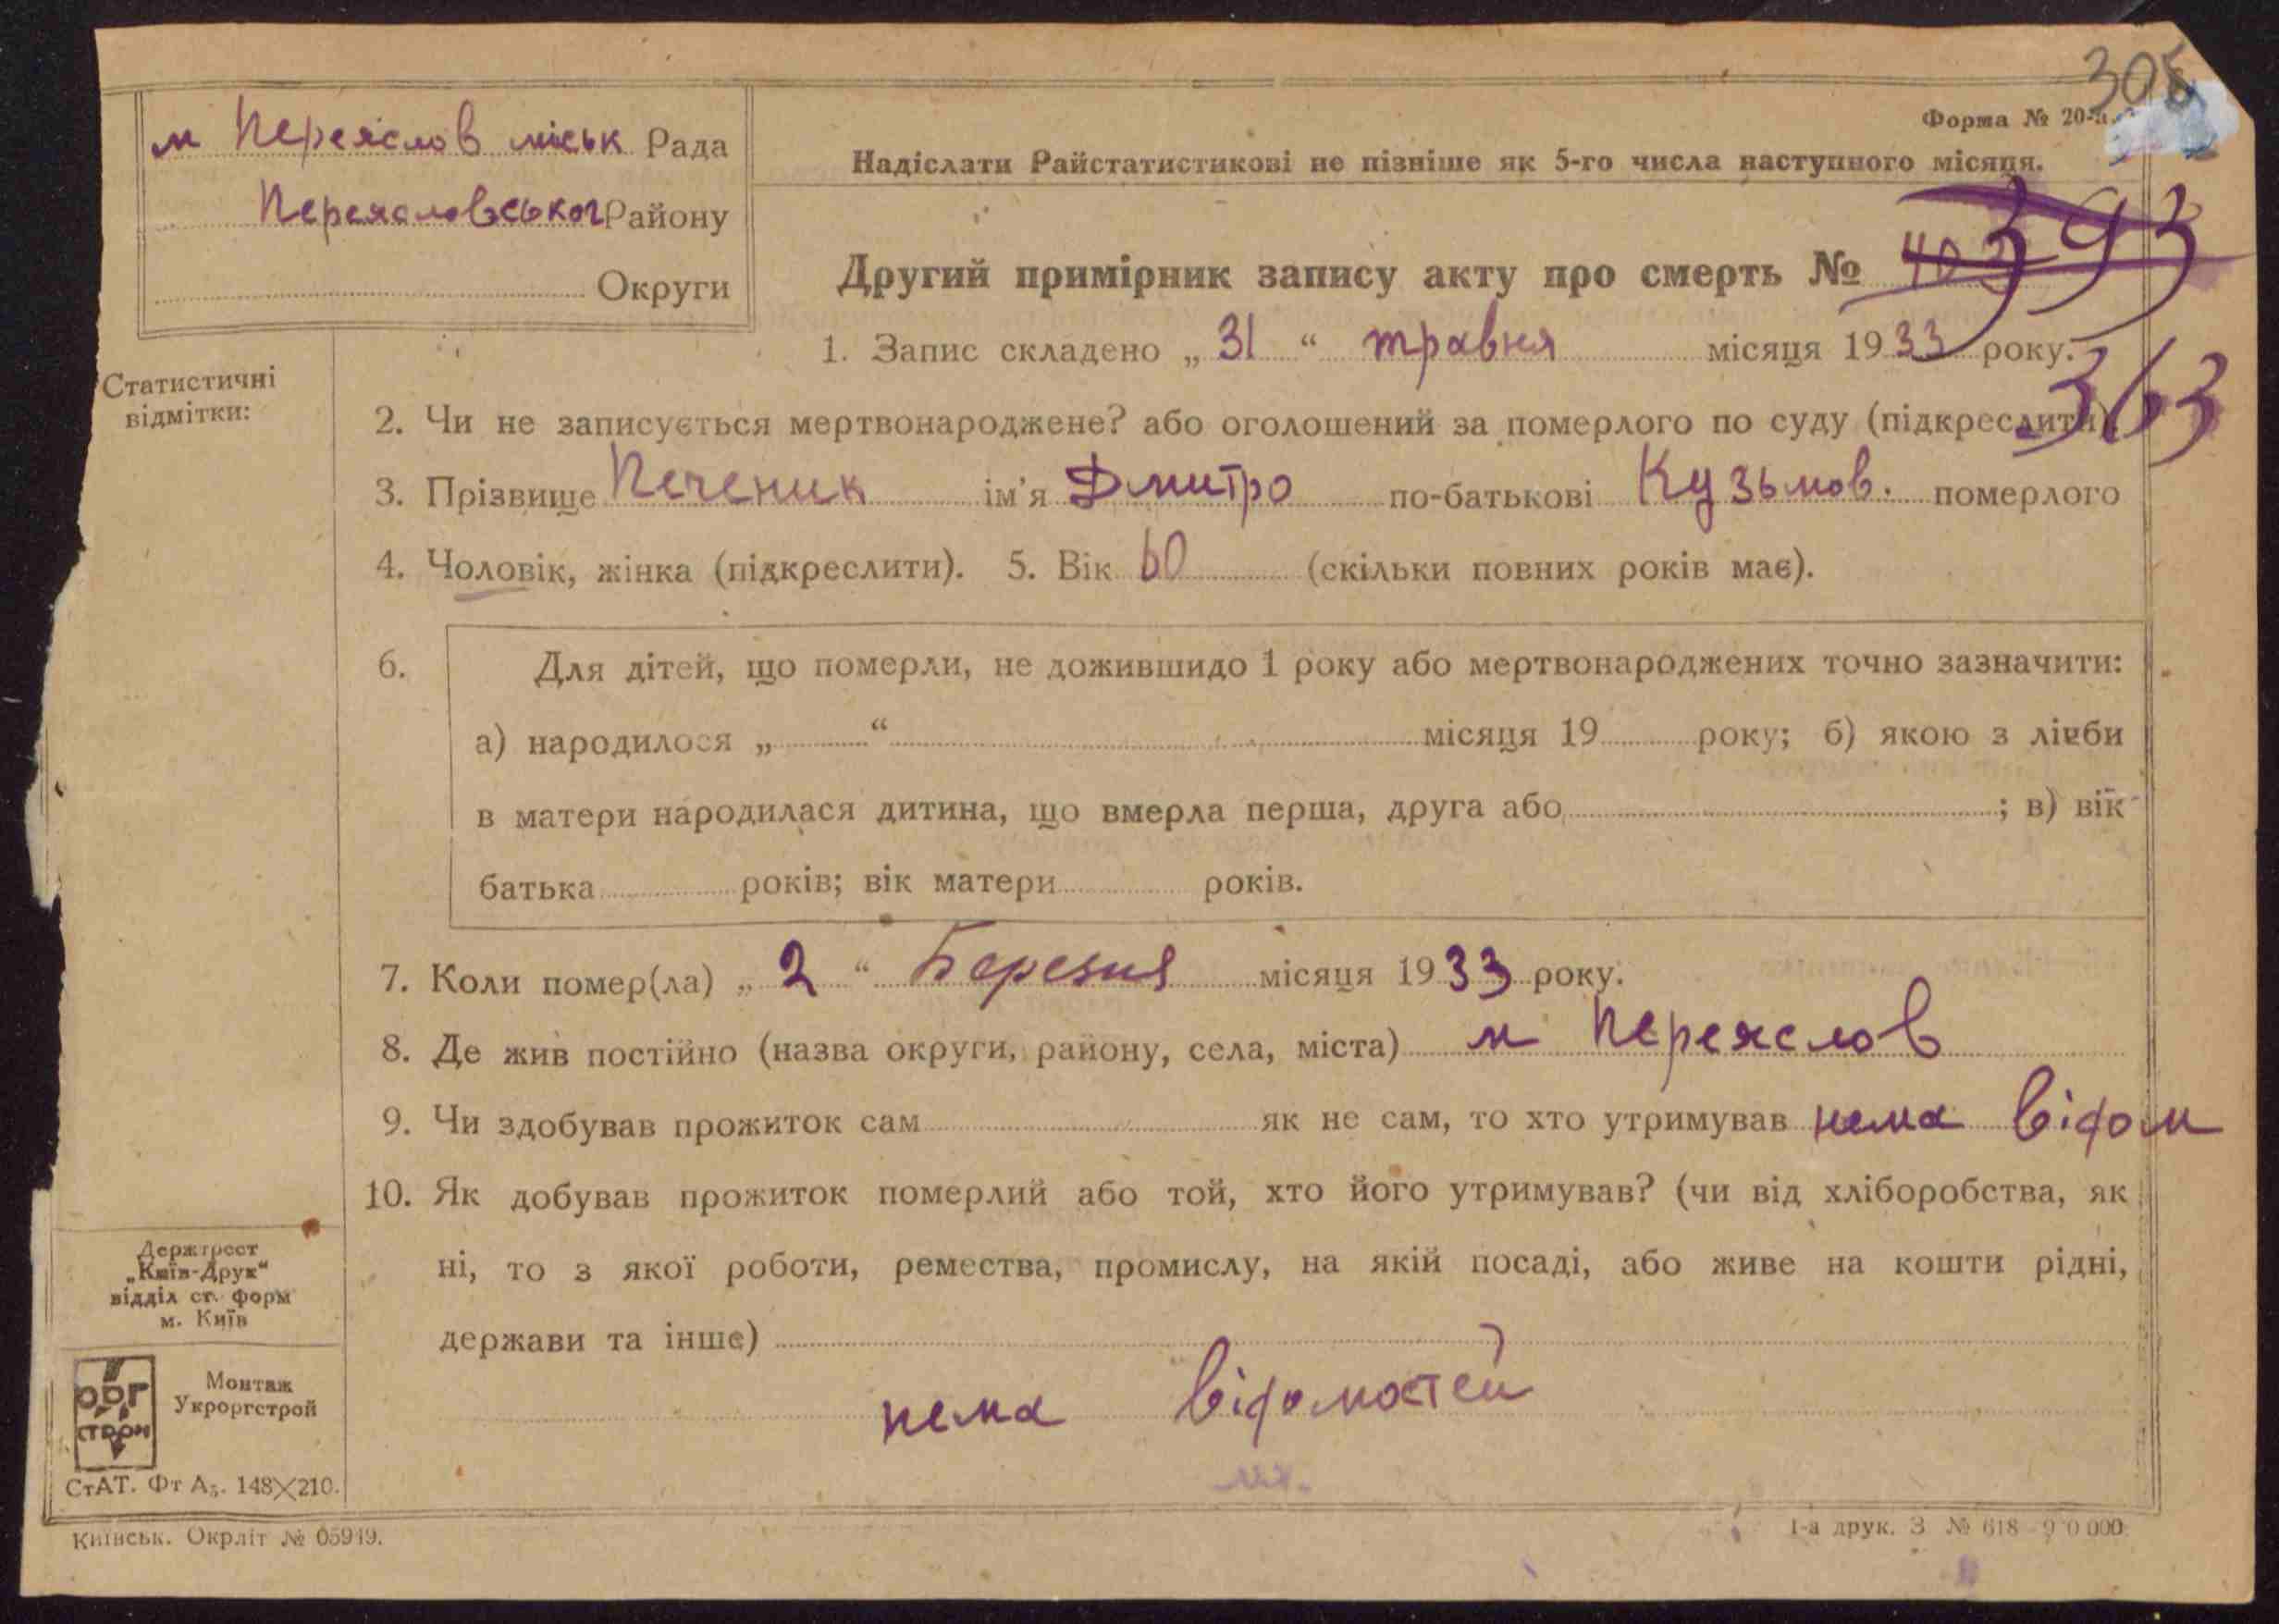 305
м Переяслов міськ Рада
Переясловськог Району
Округи
Форма № 20-а.
Надіслати Райстатистикові не пізніше як 5-го числа наступного місяця.
Другий примірник запису акту про смерть № 403 393
363
1. Запис складено „ 31 “ травня місяця 1933 року.
Статистичні
відмітки:
2. Чи не записується мертвонароджене? або оголошений за померлого по суду (підкреслити).
3. Прізвище Печеник ім'я Дмитро по-батькові Кузьмов. померлого
4. Чоловік, жінка (підкреслити). 5. Вік 60 (скільки повних років має).
6. Для дітей, що померли, не дожившидо 1 року або мертвонароджених точно зазначити:
а) народилося „ “ місяця 19 року; б) якою з лічби
в матери народилася дитина, що вмерла перша, друга або ; в) вік
батька років; вік матери років.
7. Коли помер(ла) „ 2 “ Березня місяця 1933 року.
8. Де жив постійно (назва округи, району, села, міста) м Переяслов
9. Чи здобував прожиток сам як не сам, то хто утримував нема відом
10. Як добував прожиток померлий або той, хто його утримував? (чи від хліборобства, як
ні, то з якої роботи, ремества, промислу, на якій посаді, або живе на кошти рідні,
держави та інше)
нема відомостей
Держтрест
„Київ-Друк“
відділ ст. форм
м. Київ
ОРГ
СТРОЙ
Монтаж
Укроргстрой
СтАТ. Фт А₅. 148×210.
Київськ. Окрліт № 05949.
1-а друк. З № 618